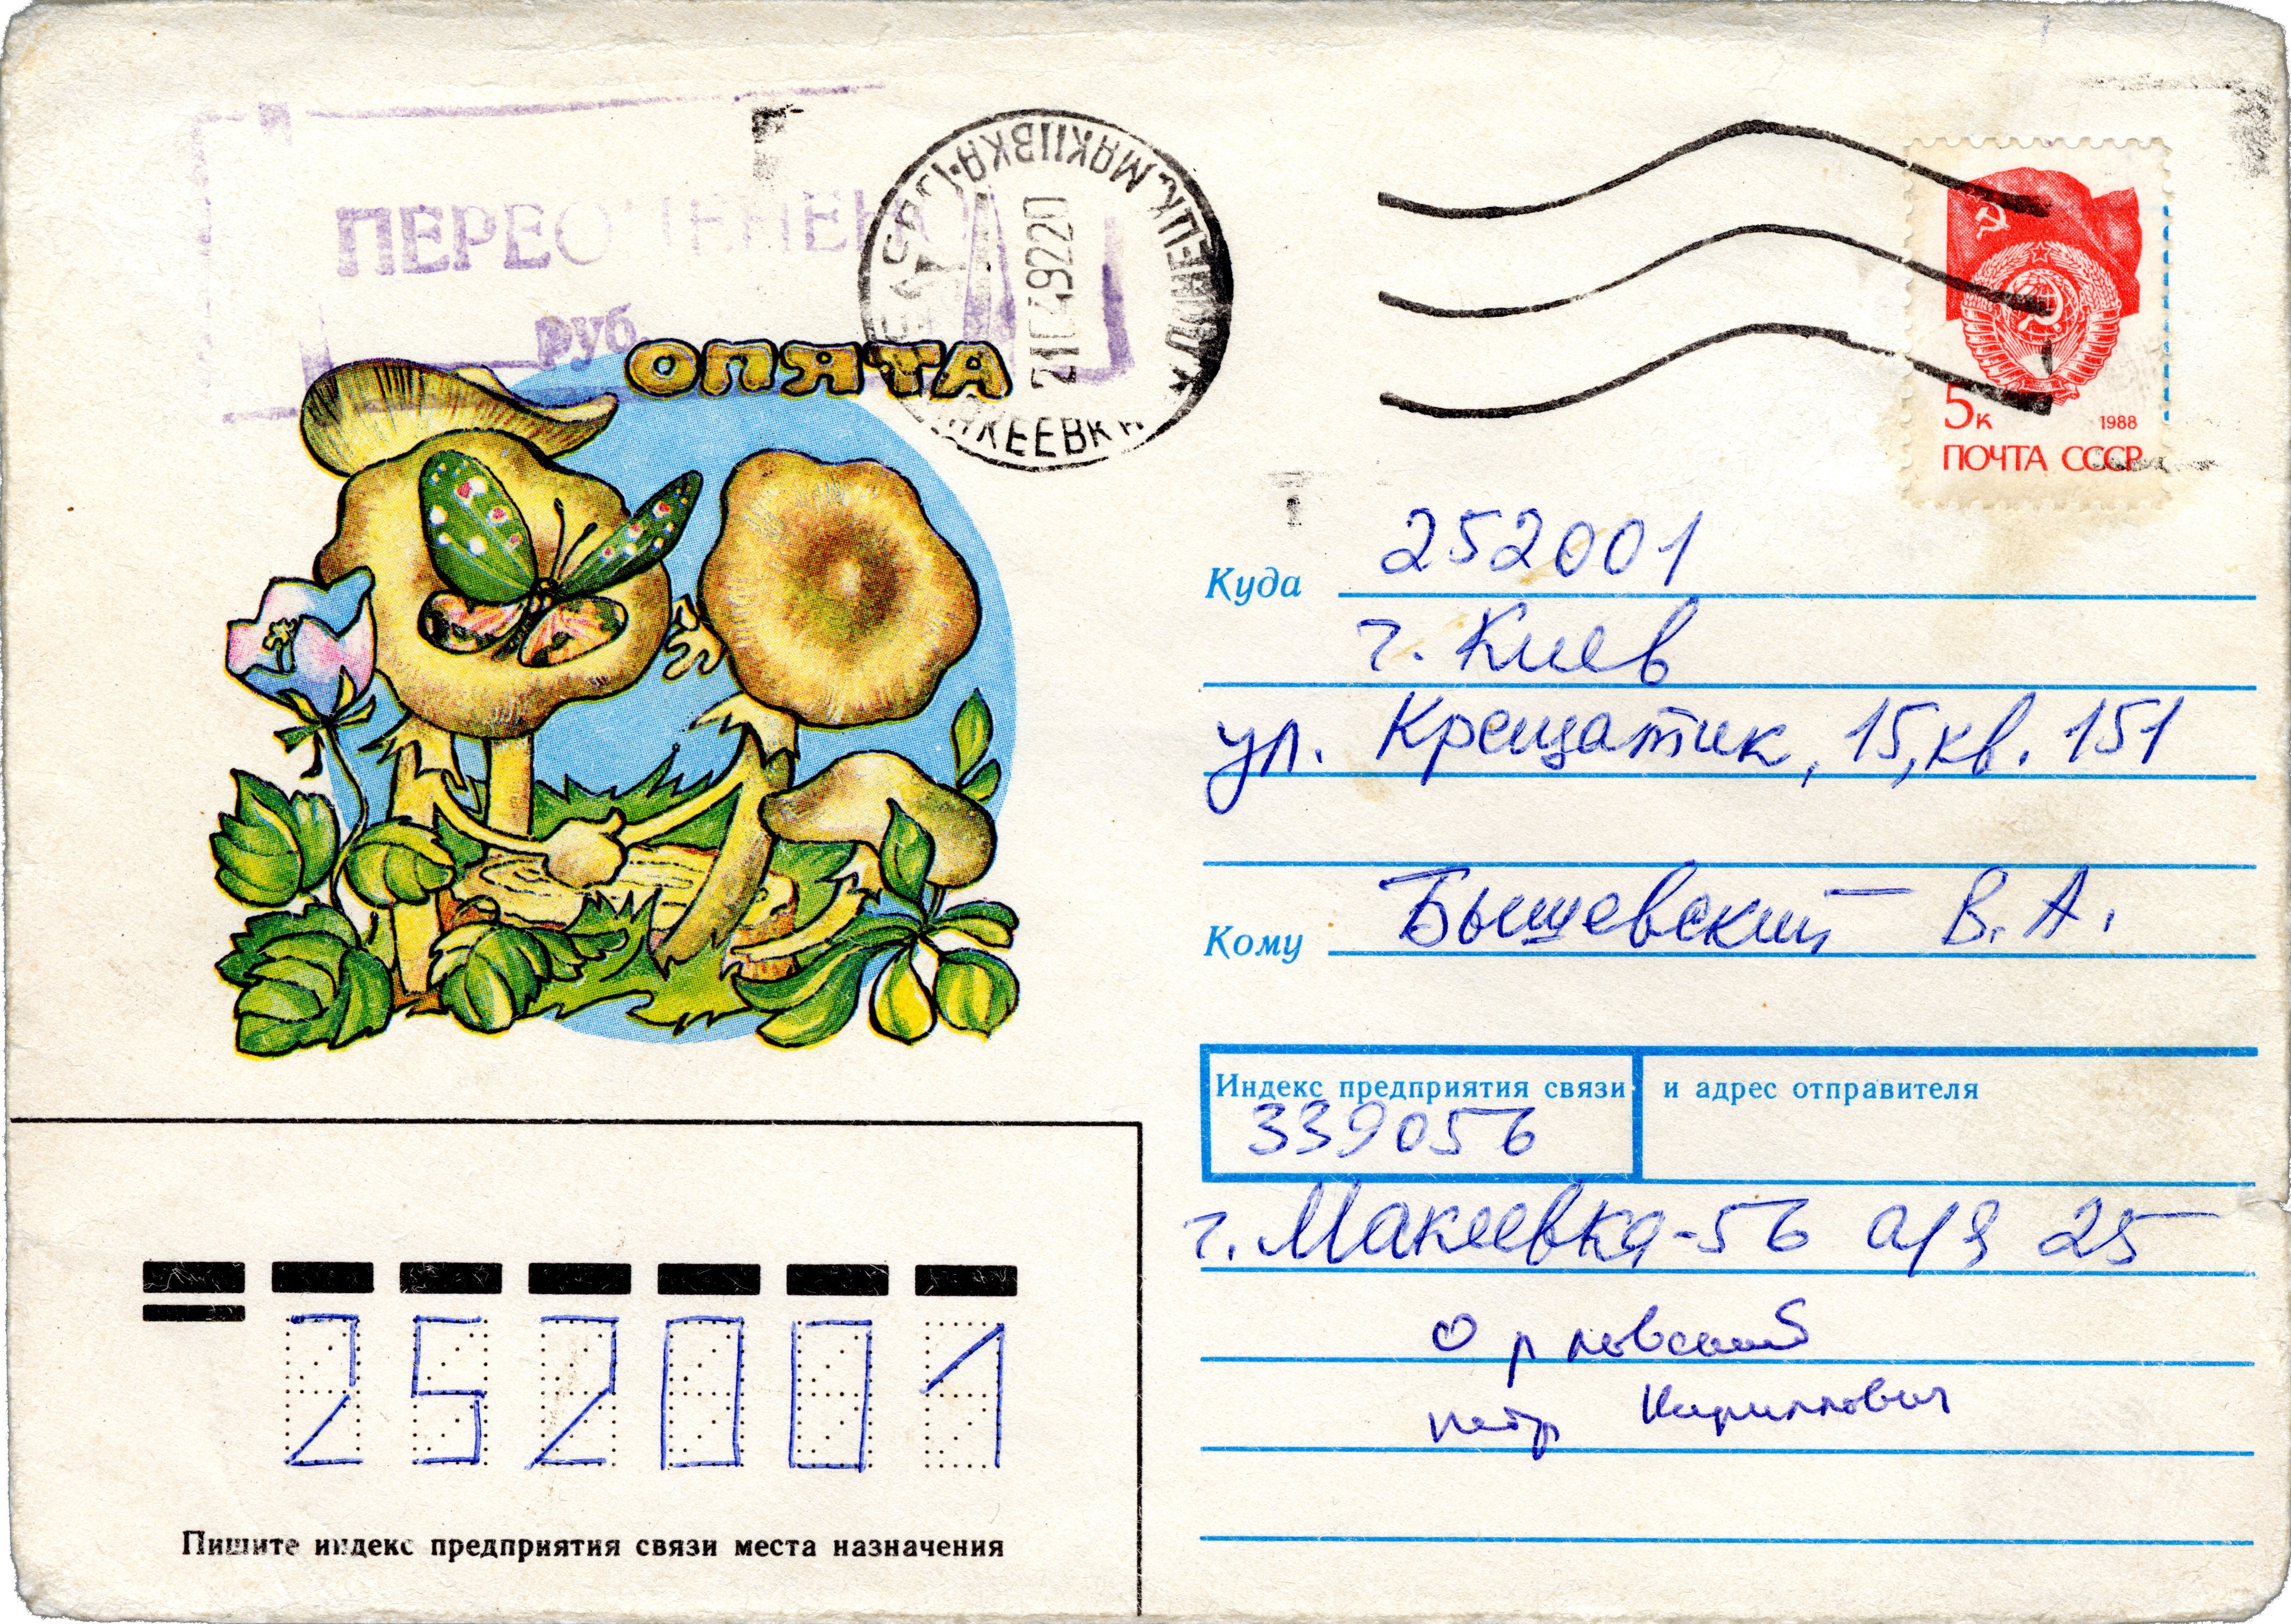 ПЕРЕОЦЕНЕНО
руб.
ОПЯТА
МАКІЇВКА
МАКЕЕВКА
5к 1988
ПОЧТА СССР
252001
Куда
г. Киев
ул. Крещатик, 15, кв. 151
Кому Бышевский В. А.
Индекс предприятия связи и адрес отправителя
339056
г. Макеевка-56 а/я 25
Петр Кириллович
252001
Пишите индекс предприятия связи места назначения